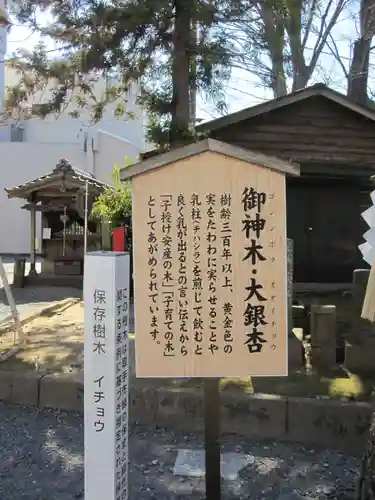 御神木・大銀杏
ゴシンボク オオイチョウ
樹齢三百年以上、黄金色の
実をたわわに実らせることや
乳柱(チバシラ)を煎じて飲むと
良く乳が出るとの言い伝えから
「子授け安産の木」「子育ての木」
としてあがめられています。
保存樹木 イチョウ